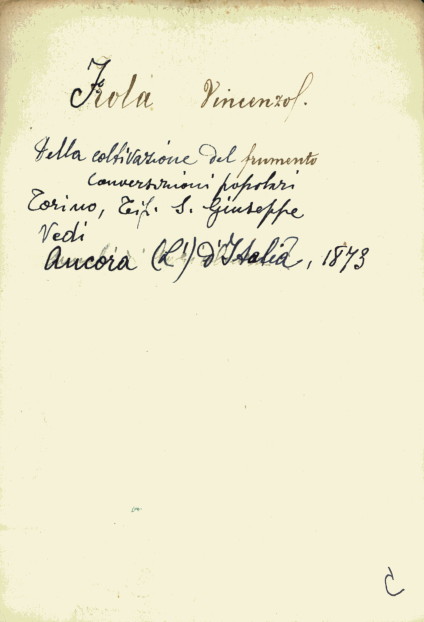 Frola Vincenzo.
Della coltivazione del frumento
conversazioni popolari
Torino, Tip. S. Giuseppe
Vedi
Ancora (L') d'Italia, 1873
C